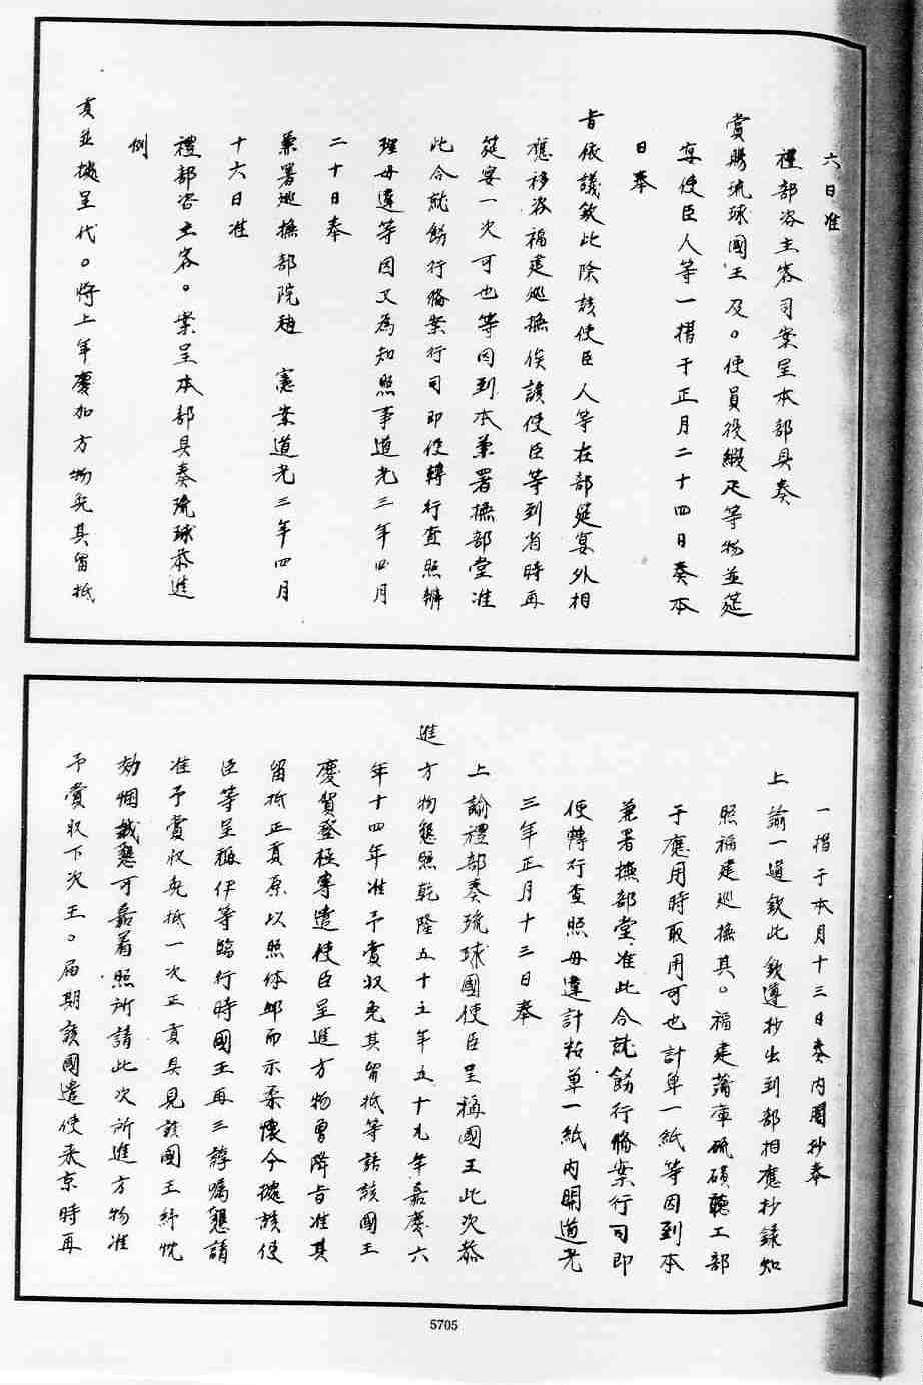 六日准
禮部咨主客司案呈本部具奏
賞賜琉球國王及。使員役緞疋等物並筵
宴使臣人等一摺于正月二十四日奏本
日奉
旨依議欽此除該使臣人等在部筵宴外相
應移咨福建巡撫俟該使臣等到省時再
筵宴一次可也等因到本兼署撫部堂准
此合就飭行備案行司即便轉行查照辦
理毋違等因又為知照事道光三年四月
二十日奉
兼署巡撫部院趙 憲案道光三年四月
十六日准
禮部咨主客。案呈本部具奏琉球恭進
例
貢並據呈代。將上年慶加方物免其留抵
一摺于本月十三日奏內閣抄奉
上諭一道欽此欽遵抄出到部相應抄錄知
照福建巡撫其。福建藩庫硫磺聽工部
于應用時取用可也計單一紙等因到本
兼署撫部堂准此合就飭行備案行司即
便轉行查照毋違計粘單一紙內開道光
三年正月十三日奉
上諭禮部奏琉球國使臣呈稱國王此次恭
進方物懇照乾隆五十五年五十九年嘉慶六
年十四年准予賞收免其留抵等語該國王
慶賀登極專遣使臣呈進方物曾降旨准其
留抵正貢原以照体卹而示柔懷今據該使
臣等呈稱伊等臨行時國王再三諄囑懇請
准予賞收免抵一次正貢具見該國王紓忱
効悃誠懇可嘉着照所請此次所進方物准
予賞收下次王。屆期該國遣使來京時再
5705